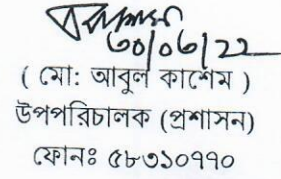 ৩০/০৬/২২
( মো: আবুল কাশেম )
উপপরিচালক (প্রশাসন)
ফোনঃ ৫৮৩১০৭৭০